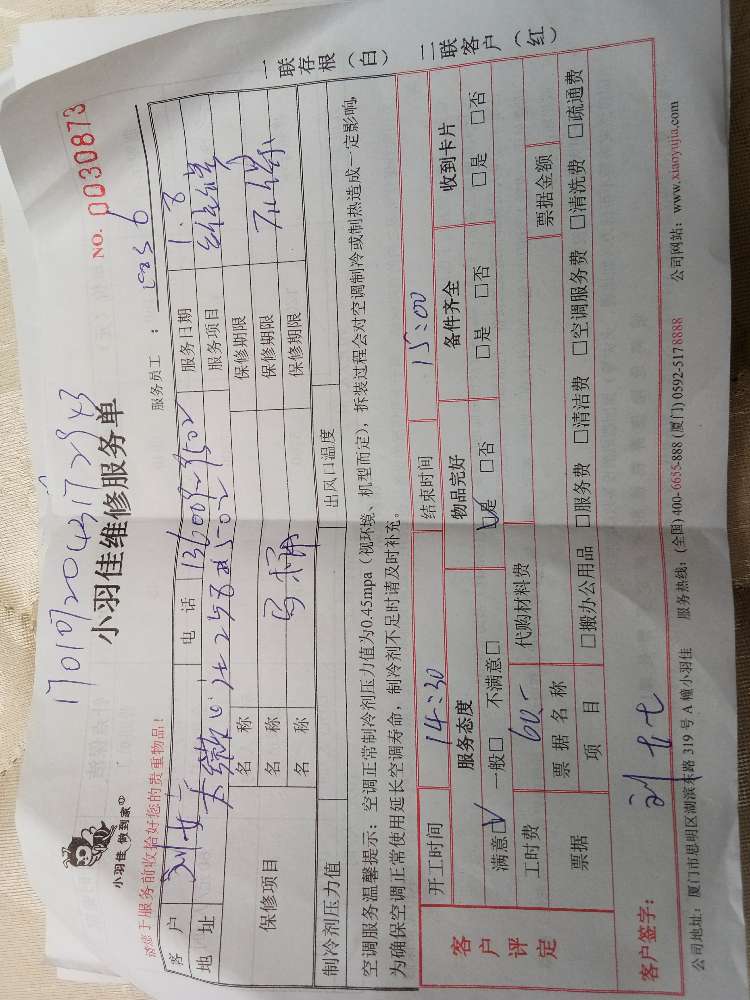 17010920431172943
小羽佳 做到家
小羽佳维修服务单
NO. 0030873
请您于服务前收拾好您的贵重物品!
服务员工:
客户 刘女士 电话 服务日期 1.8
地址 服务项目
保修项目 名称 保修期限
名称 保修期限
名称 保修期限
制冷剂压力值 出风口温度
空调服务温馨提示:空调正常制冷剂压力值为0.45mpa(视环境、机型而定),拆装过程会对空调制冷或制热造成一定影响,
为确保空调正常使用延长空调寿命,制冷剂不足时请及时补充。
一联存根(白) 二联客户(红)
客户评定
开工时间 14:30 结束时间 15:00
服务态度 物品完好 备件齐全 收到卡片
满意□ 一般□ 不满意□ □是 □否 □是 □否 □是 □否
工时费 60.- 代购材料费
票据 票据名称 票据金额
项目 □搬办公用品 □服务费 □清洁费 □空调服务费 □清洗费 □疏通费
客户签字:
公司地址:厦门市思明区湖滨东路 319 号 A 幢小羽佳 服务热线:(全国) 400-6655-888 (厦门) 0592-5178888 公司网站:www.xiaoyujia.com